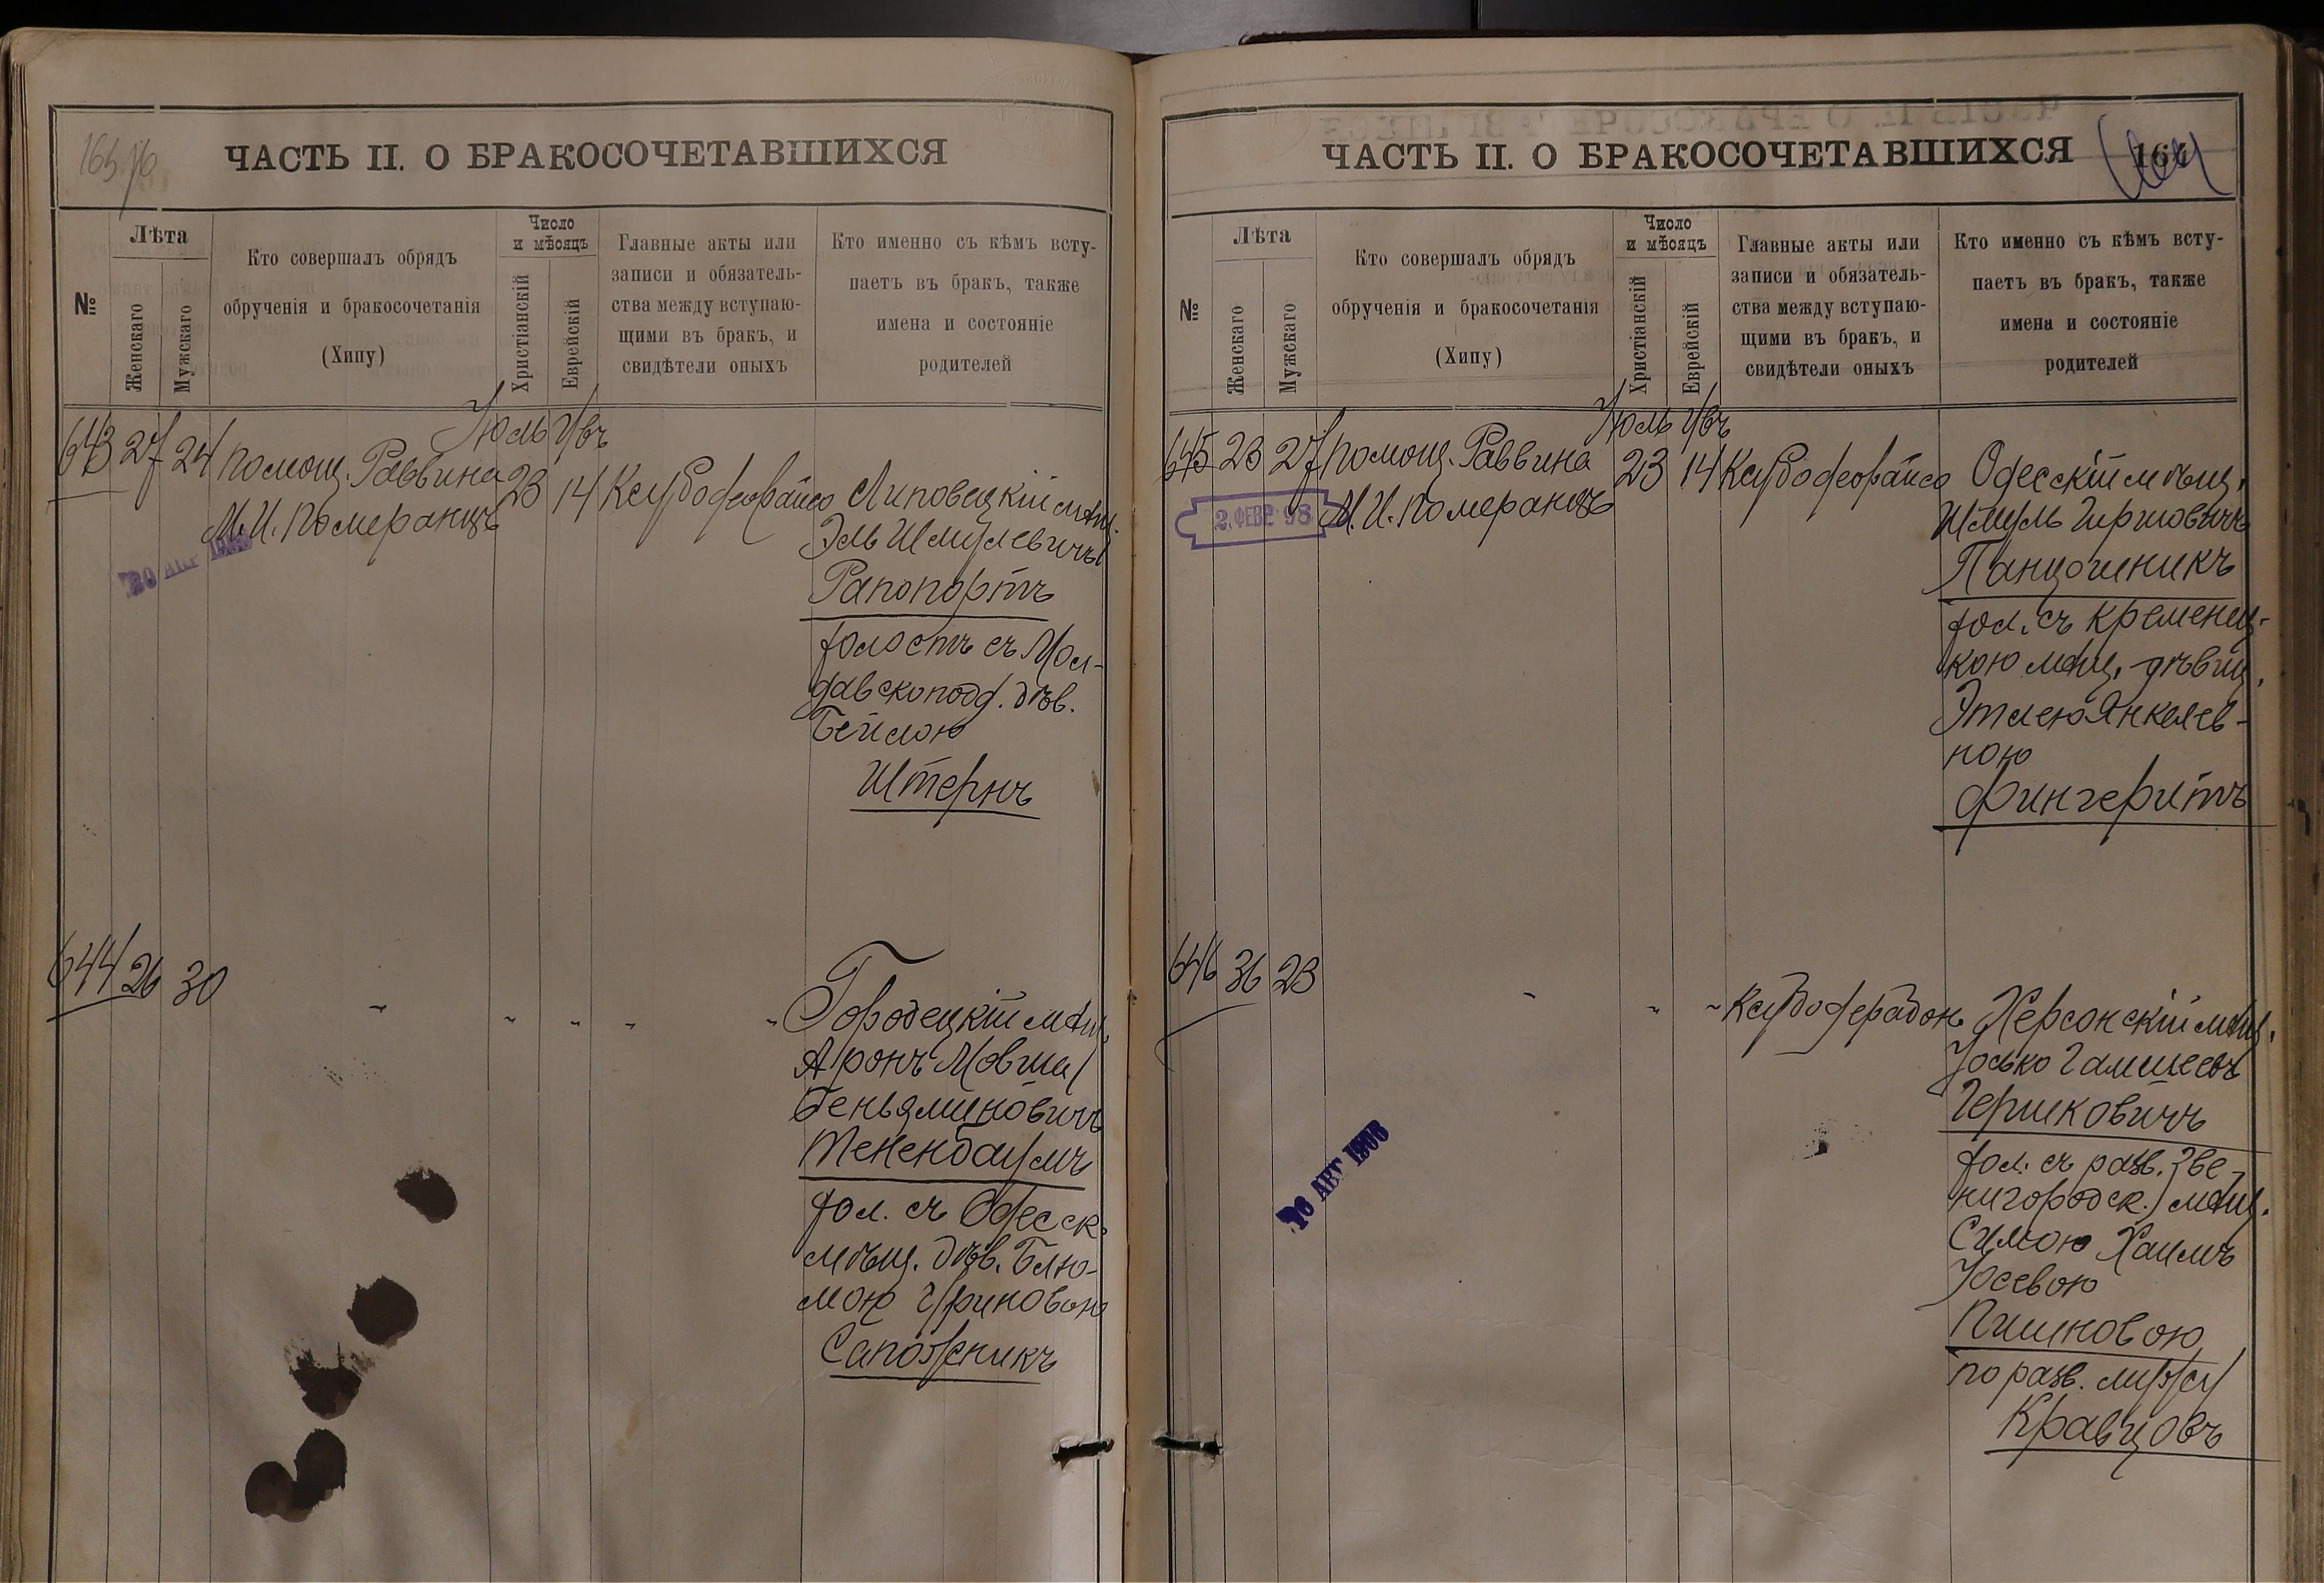 ЧАСТЬ II. О БРАКОСОЧЕТАВШИХСЯ
№
Лѣта
Женскаго
Мужскаго
Кто совершалъ обрядъ
обрученія и бракосочетанія
(Хипу)
Число
и мѣсяцъ
Христіанскій
Еврейскій
Главные акты или
записи и обязатель-
ства между вступаю-
щими въ бракъ, и
свидѣтели оныхъ
Кто именно съ кѣмъ всту-
паетъ въ бракъ, также
имена и состояніе
родителей
Іюль
643 27 24 Помощ. Раввина 23 14
М. И. Померанцъ
Липовецкій мѣщ.
Эль Шмулевичъ
Рапопортъ
холостъ съ Мол-
давскоподд. дѣв.
Бейлою
Штернъ
644 26 30 " " " " "
Городецкій мѣщ.
Аронъ Мовша
Беньяминовичъ
Тененбаумъ
хол. съ Одесск.
мѣщ. дѣв. Блю-
мою
Сапожникъ
ЧАСТЬ II. О БРАКОСОЧЕТАВШИХСЯ
164
№
Лѣта
Женскаго
Мужскаго
Кто совершалъ обрядъ
обрученія и бракосочетанія
(Хипу)
Число
и мѣсяцъ
Христіанскій
Еврейскій
Главные акты или
записи и обязатель-
ства между вступаю-
щими въ бракъ, и
свидѣтели оныхъ
Кто именно съ кѣмъ всту-
паетъ въ бракъ, также
имена и состояніе
родителей
Іюль
645 23 27 Помощ. Раввина 23 14
М. И. Померанцъ
2. ФЕВР 98
Одесскій мѣщ.
Шмуль Гиршовичъ
хол. съ Кременец-
кою мѣщ. дѣвиц.
Этлею Янкелев-
ною
Фингеритъ
646 36 23 " " "
Херсонскій мѣщ.
Іосько
Гершковичъ
хол. съ разв. Зве-
нигородск. мѣщ.
Симою Хаимъ
Іосевою
по разв. мужу
Кравцовъ